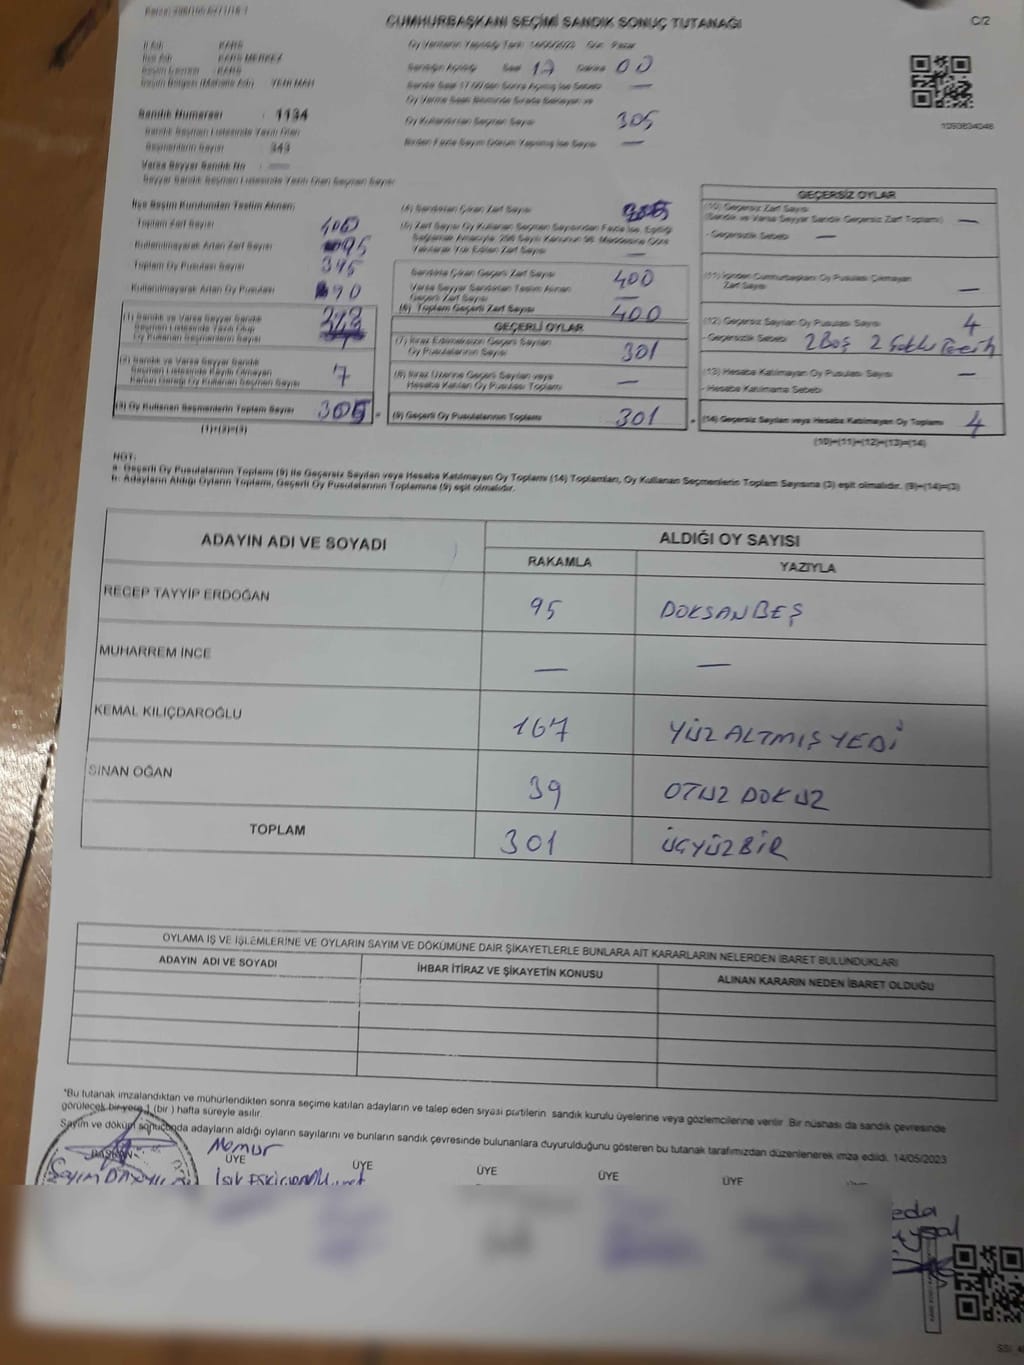 CUMHURBAŞKANI SEÇİMİ SANDIK SONUÇ TUTANAĞI
C/2
İl Adı : KARS
İlçe Adı : KARS MERKEZ
Oy Verme Tarihi 14/05/2023 Gün Pazar
Saat 17 Dakika 00
YENİ MAH
Sandık Numarası : 1134
Sandık Seçmen Listesinde Yazılı Olan
Seçmenlerin Sayısı : 343
Oy Kullanan Seçmen Sayısı 305
Birden Fazla Sayım Döküm Yapılmış İse Sayısı —
Varsa Seyyar Sandık No —
Seyyar Sandık Seçmen Listesinde Yazılı Olan Seçmen Sayısı
1093834046
İlçe Seçim Kurulundan Teslim Alınan;
Toplam Zarf Sayısı 400
Kullanılmayarak Artan Zarf Sayısı 95
Toplam Oy Pusulası Sayısı 395
Kullanılmayarak Artan Oy Pusulası 90
(1) Sandık ve Varsa Seyyar Sandık
Seçmen Listesinde Yazılı Olup
Oy Kullanan Seçmenlerin Sayısı
(2) Sandık ve Varsa Seyyar Sandık
Seçmen Listesinde Kaydı Olmayan
Kanun Gereği Oy Kullanan Seçmen Sayısı 7
(3) Oy Kullanan Seçmenlerin Toplam Sayısı 305
(1)+(2)=(3)
(4) Sandıktan Çıkan Zarf Sayısı 305
(5) Zarf Sayısı Oy Kullanan Seçmen Sayısından Fazla İse, Eşitliği
Sağlamak Amacıyla 298 Sayılı Kanunun 98. Maddesine Göre
Yakılarak Yok Edilen Zarf Sayısı —
Sandıkta Çıkan Geçerli Zarf Sayısı 400
Varsa Seyyar Sandıktan Teslim Alınan
Geçerli Zarf Sayısı —
(6) Toplam Geçerli Zarf Sayısı 400
GEÇERLİ OYLAR
(7) İtiraz Edilmeksizin Geçerli Sayılan
Oy Pusulalarının Sayısı 301
(8) İtiraz Üzerine Geçerli Sayılan veya
Hesaba Katılan Oy Pusulası Toplamı —
(9) Geçerli Oy Pusulalarının Toplamı 301
GEÇERSİZ OYLAR
(10) Geçersiz Zarf Sayısı
(Sandık ve Varsa Seyyar Sandık Geçersiz Zarf Toplamı) —
- Geçersizlik Sebebi —
(11) İçinden Cumhurbaşkanı Oy Pusulası Çıkmayan
Zarf Sayısı —
(12) Geçersiz Sayılan Oy Pusulası Sayısı 4
- Geçersizlik Sebebi 2 Boş 2 Çoklu Tercih
(13) Hesaba Katılmayan Oy Pusulası Sayısı —
- Hesaba Katılmama Sebebi
(14) Geçersiz Sayılan veya Hesaba Katılmayan Oy Toplamı 4
(10)+(11)+(12)+(13)=(14)
NOT:
a- Geçerli Oy Pusulalarının Toplamı (9) ile Geçersiz Sayılan veya Hesaba Katılmayan Oy Toplamı (14) Toplamları, Oy Kullanan Seçmenlerin Toplam Sayısına (3) eşit olmalıdır. (9)+(14)=(3)
b- Adayların Aldığı Oyların Toplamı, Geçerli Oy Pusulalarının Toplamına (9) eşit olmalıdır.
ADAYIN ADI VE SOYADI
ALDIĞI OY SAYISI
RAKAMLA YAZIYLA
RECEP TAYYİP ERDOĞAN 95 DOKSANBEŞ
MUHARREM İNCE — —
KEMAL KILIÇDAROĞLU 167 YÜZALTMIŞYEDİ
SİNAN OĞAN 39 OTUZ DOKUZ
TOPLAM 301 ÜÇYÜZBİR
OYLAMA İŞ VE İŞLEMLERİNE VE OYLARIN SAYIM VE DÖKÜMÜNE DAİR ŞİKAYETLERLE BUNLARA AİT KARARLARIN NELERDEN İBARET BULUNDUKLARI
ADAYIN ADI VE SOYADI İHBAR İTİRAZ VE ŞİKAYETİN KONUSU ALINAN KARARIN NEDEN İBARET OLDUĞU
*Bu tutanak imzalandıktan ve mühürlendikten sonra seçime katılan adayların ve talep eden siyasi partilerin sandık kurulu üyelerine veya gözlemcilerine verilir. Bir nüshası da sandık çevresinde
görülecek bir yere 1 (bir ) hafta süreyle asılır.
Sayım ve döküm sonucunda adayların aldığı oyların sayılarını ve bunların sandık çevresinde bulunanlara duyurulduğunu gösteren bu tutanak tarafımızdan düzenlenerek imza edildi. 14/05/2023
BAŞKAN
Memur
ÜYE ÜYE ÜYE ÜYE ÜYE